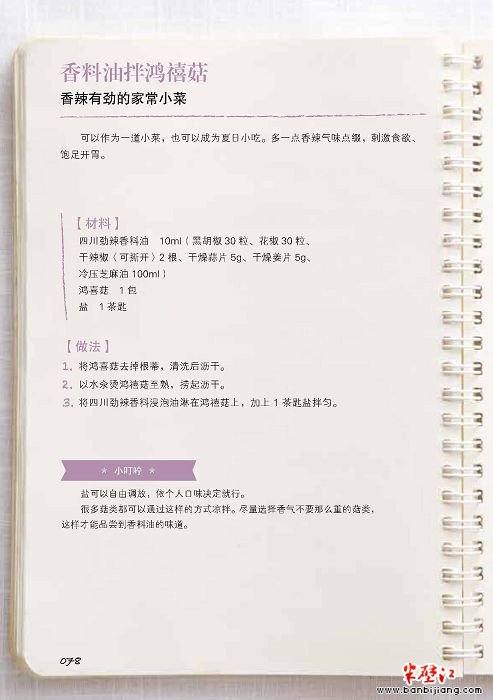 香料油拌鸿禧菇
香辣有劲的家常小菜
可以作为一道小菜，也可以成为夏日小吃。多一点香辣气味点缀，刺激食欲、
饱足开胃。
【材料】
四川劲辣香料油 10ml（黑胡椒 30 粒、花椒 30 粒、
干辣椒（可撕开）2 根、干燥蒜片 5g、干燥姜片 5g、
冷压芝麻油 100ml）
鸿喜菇 1 包
盐 1 茶匙
【做法】
1. 将鸿喜菇去掉根蒂，清洗后沥干。
2. 以水汆烫鸿禧菇至熟，捞起沥干。
3. 将四川劲辣香料浸泡油淋在鸿禧菇上，加上 1 茶匙盐拌匀。
★ 小叮咛 ★
盐可以自由调放，依个人口味决定就行。
很多菇类都可以通过这样的方式凉拌。尽量选择香气不要那么重的菇类，
这样才能品尝到香料油的味道。
078
半壁江
www.banbijiang.com